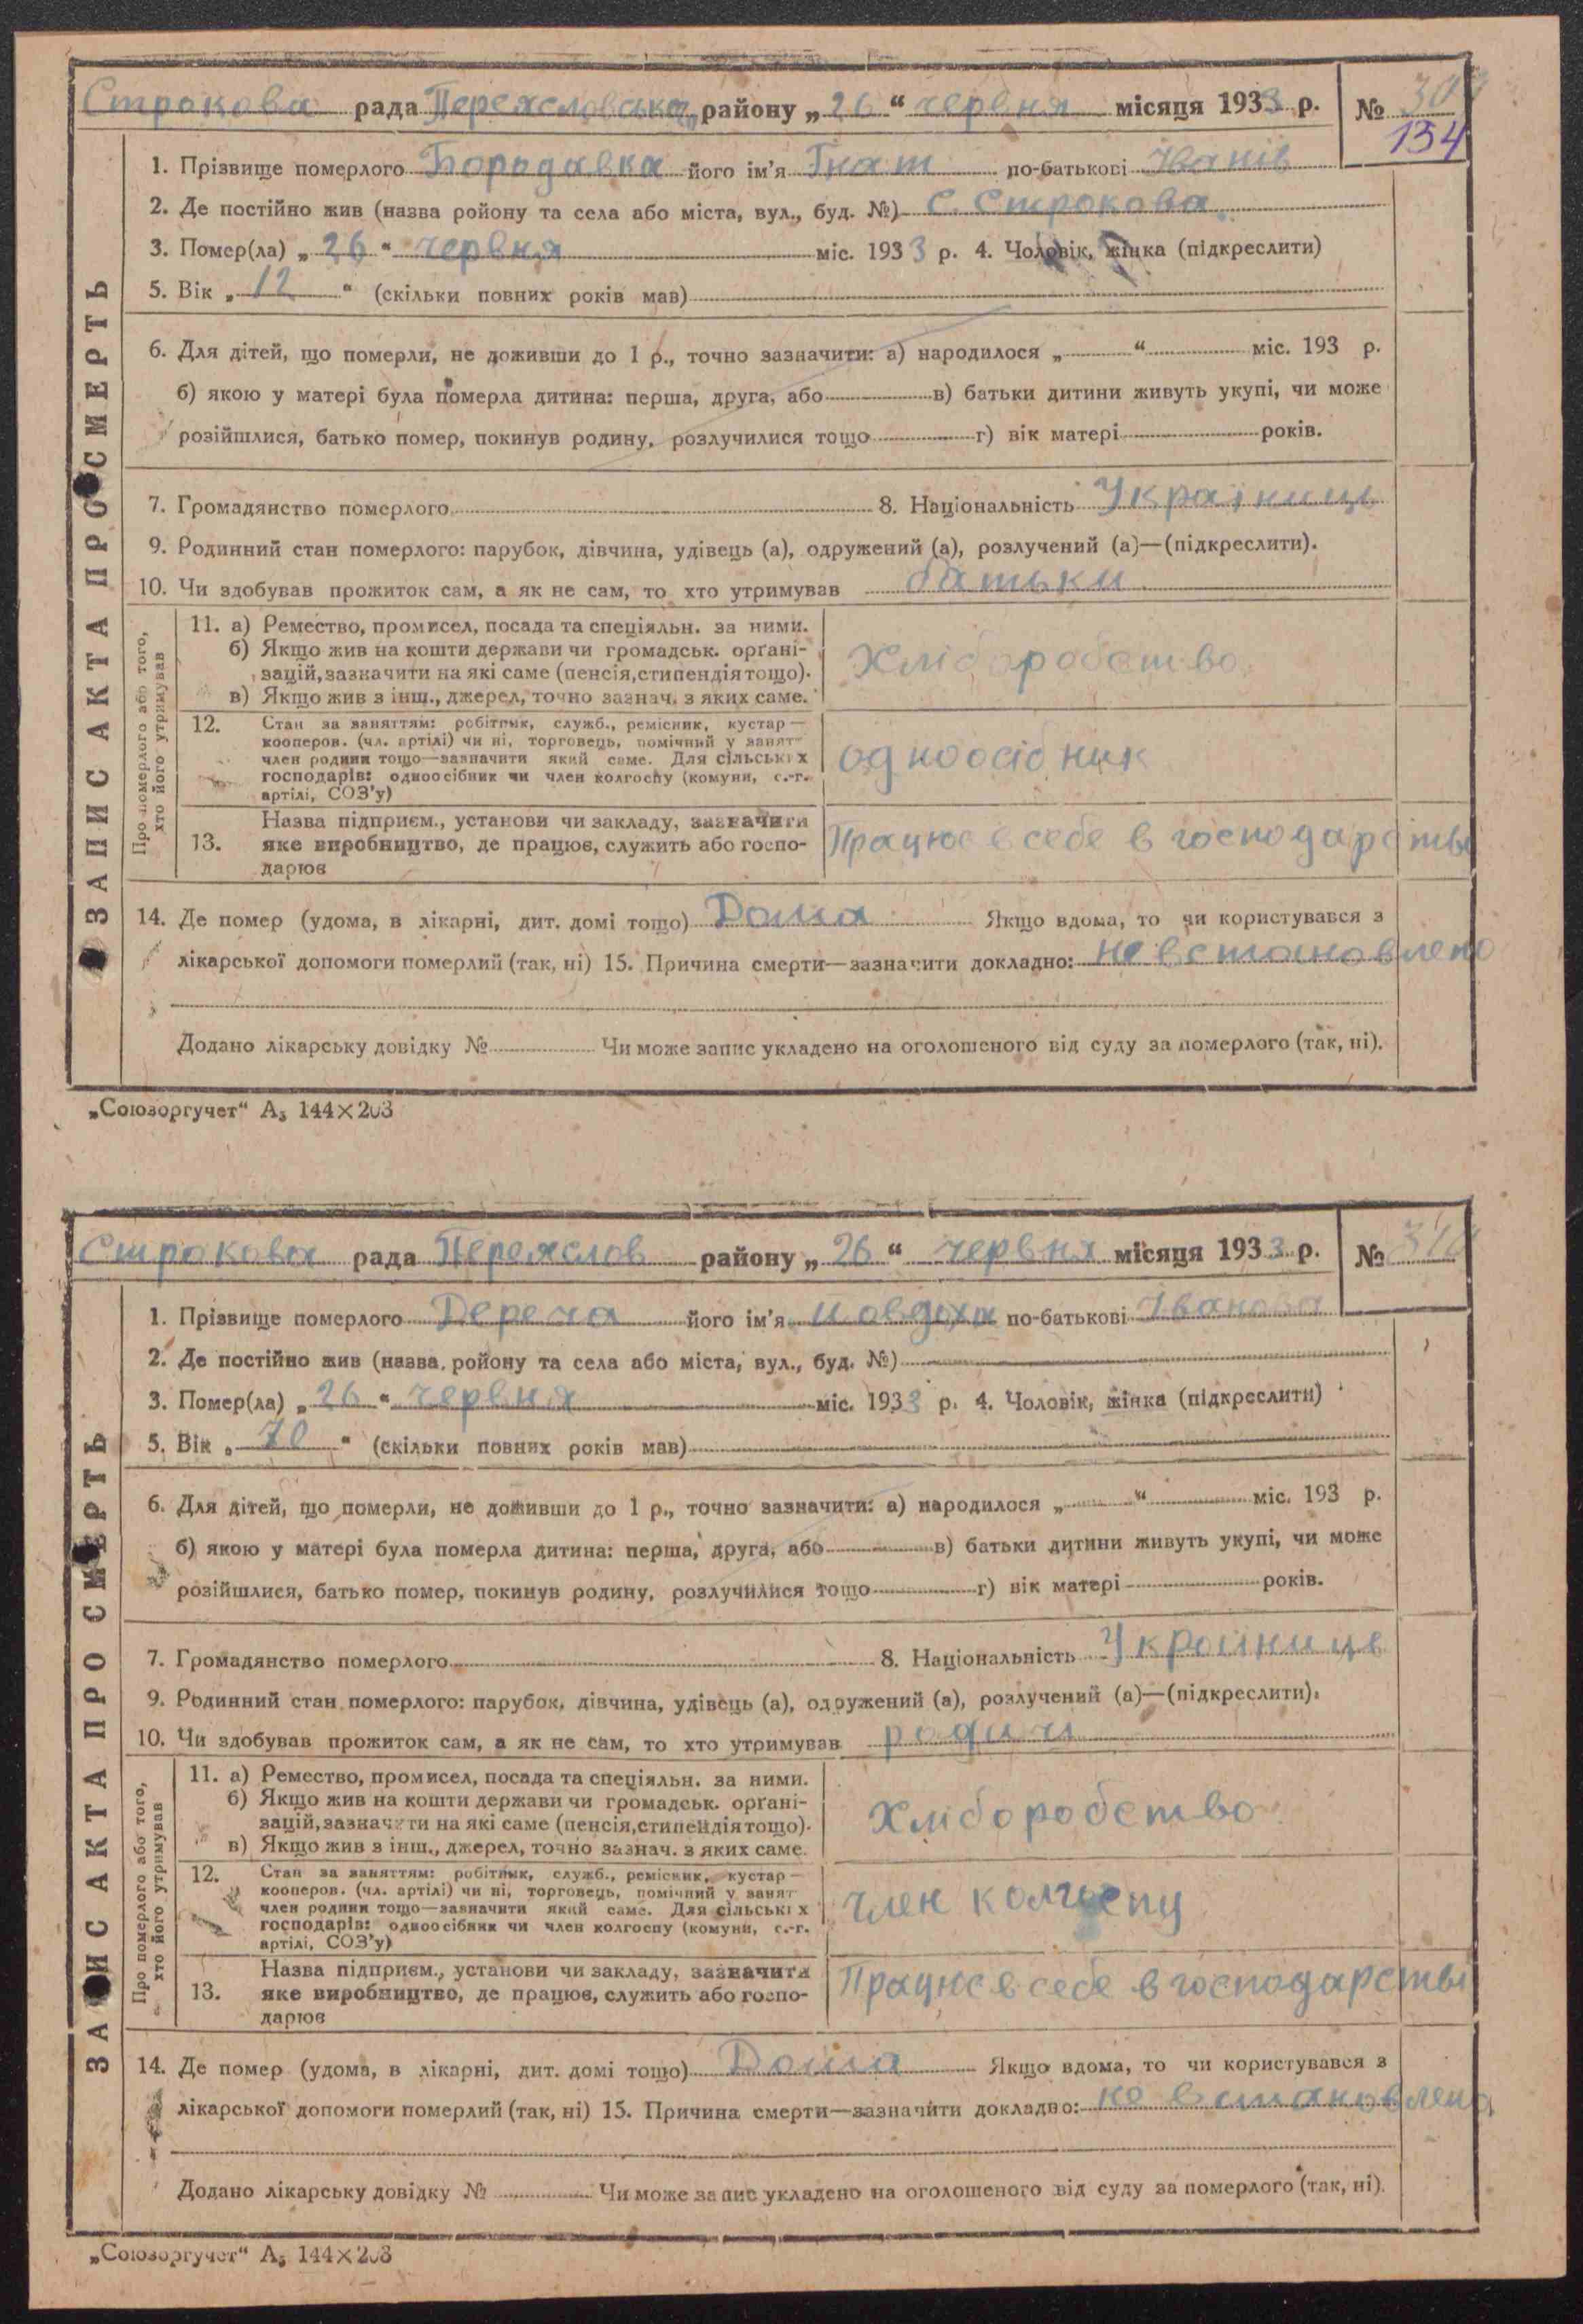 Строкова рада Переяславська району „26“ червня місяця 1933 р. № 309
134
1. Прізвище померлого Бородавка його ім'я Гнат по-батькові Іванів
2. Де постійно жив (назва ройону та села або міста, вул., буд. №) С. Строкова
3. Помер(ла) „26“ червня міс. 1933 р. 4. Чоловік, жінка (підкреслити)
5. Вік „12“ (скільки повних років мав)
6. Для дітей, що померли, не доживши до 1 р., точно зазначити: а) народилося „ “ міс. 193 р.
б) якою у матері була померла дитина: перша, друга, або в) батьки дитини живуть укупі, чи може
розійшлися, батько помер, покинув родину, розлучилися тощо г) вік матері років.
7. Громадянство померлого 8. Національність Украінець
9. Родинний стан померлого: парубок, дівчина, удівець (а), одружений (а), розлучений (а)—(підкреслити).
10. Чи здобував прожиток сам, а як не сам, то хто утримував батьки
ЗАПИС АКТА ПРО СМЕРТЬ
Про померлого або того, хто його утримував
11. а) Ремество, промисел, посада та спеціяльн. за ними.
б) Якщо жив на кошти держави чи громадськ. орґані-
зацій, зазначити на які саме (пенсія, стипендія тощо).
в) Якщо жив з інш., джерел, точно зазнач. з яких саме.
Хліборобство
12. Стан за заняттям: робітник, служб., ремісник, кустар—
кооперов. (чл. артілі) чи ні, торговець, помічний у занят
член родини тощо—зазначити який саме. Для сільських
господарів: одноосібник чи член колгоспу (комуни, с.-г.
артілі, СОЗ'у)
одноосібник
13. Назва підприєм., установи чи закладу, зазначити
яке виробництво, де працює, служить або госпо-
дарює
Працює в себе в господарстві
14. Де помер (удома, в лікарні, дит. домі тощо) Дома Якщо вдома, то чи користувався з
лікарської допомоги померлий (так, ні) 15. Причина смерти—зазначити докладно: не встановлено
Додано лікарську довідку № Чи може запис укладено на оголошеного від суду за померлого (так, ні).
„Союзоргучет“ А₅ 144×203
Строкова рада Переяслов району „26“ червня місяця 1933 р. № 310
1. Прізвище померлого Дереча його ім'я Иовдоха по-батькові Іванова
2. Де постійно жив (назва ройону та села або міста, вул., буд. №)
3. Помер(ла) „26“ червня міс. 1933 р. 4. Чоловік, жінка (підкреслити)
5. Вік „70“ (скільки повних років мав)
6. Для дітей, що померли, не доживши до 1 р., точно зазначити: а) народилося „ “ міс. 193 р.
б) якою у матері була померла дитина: перша, друга, або в) батьки дитини живуть укупі, чи може
розійшлися, батько помер, покинув родину, розлучилися тощо г) вік матері років.
7. Громадянство померлого 8. Національність Украинице
9. Родинний стан померлого: парубок, дівчина, удівець (а), одружений (а), розлучений (а)—(підкреслити).
10. Чи здобував прожиток сам, а як не сам, то хто утримував родичі
ЗАПИС АКТА ПРО СМЕРТЬ
Про померлого або того, хто його утримував
11. а) Ремество, промисел, посада та спеціяльн. за ними.
б) Якщо жив на кошти держави чи громадськ. орґані-
зацій, зазначити на які саме (пенсія, стипендія тощо).
в) Якщо жив з інш., джерел, точно зазнач. з яких саме.
Хліборобство
12. Стан за заняттям: робітник, служб., ремісник, кустар—
кооперов. (чл. артілі) чи ні, торговець, помічний у занят
член родини тощо—зазначити який саме. Для сільських
господарів: одноосібник чи член колгоспу (комуни, с.-г.
артілі, СОЗ'у)
член колгоспу
13. Назва підприєм., установи чи закладу, зазначити
яке виробництво, де працює, служить або госпо-
дарює
Працює в себе в господарстві
14. Де помер (удома, в лікарні, дит. домі тощо) Дома Якщо вдома, то чи користувався з
лікарської допомоги померлий (так, ні) 15. Причина смерти—зазначити докладно: не встановлена
Додано лікарську довідку № Чи може запис укладено на оголошеного від суду за померлого (так, ні).
„Союзоргучет“ А₅ 144×203